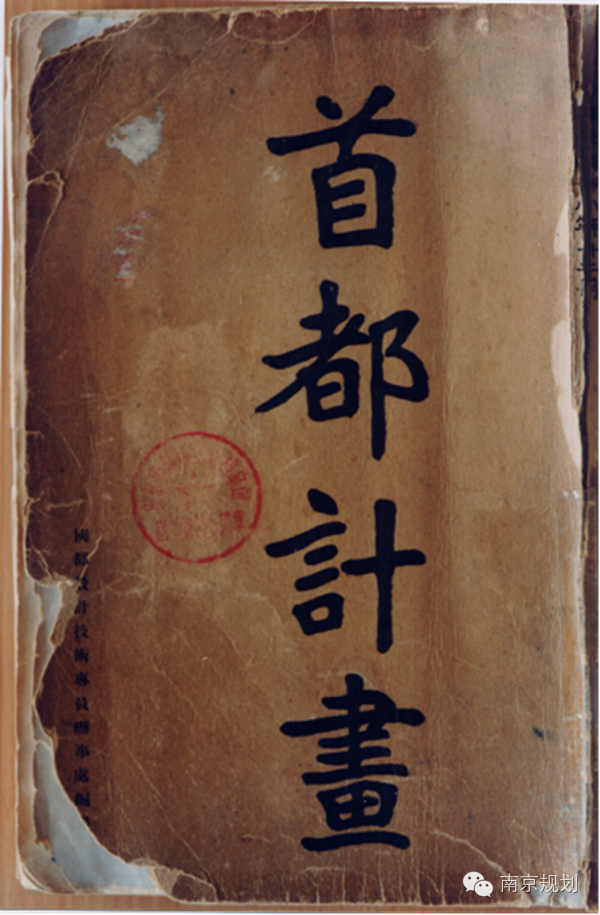 首都計畫
國都設計技術專員辦事處編
南京规划